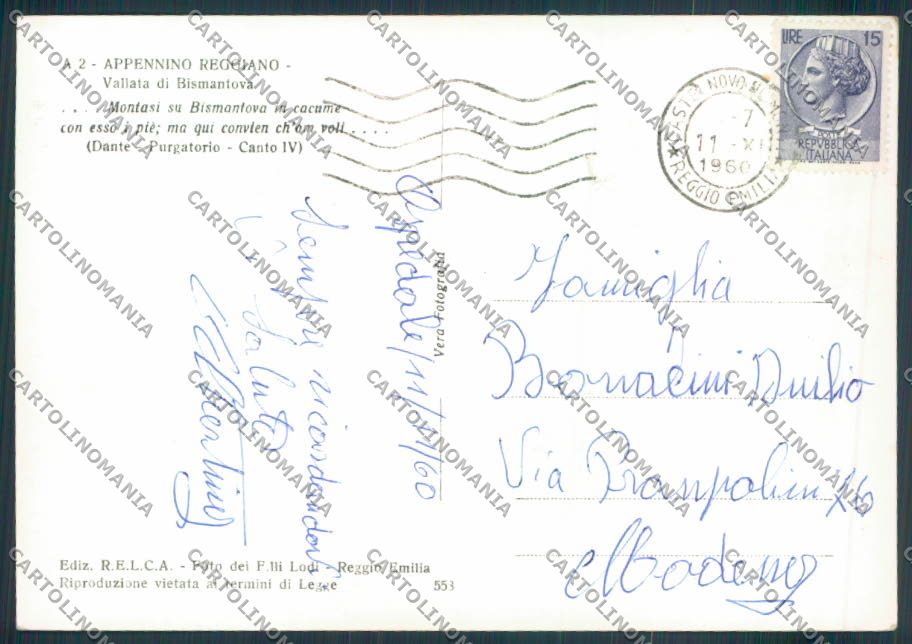 A 2 - APPENNINO REGGIANO -
Vallata di Bismantova
. . . . Montasi su Bismantova in cacume
con esso i piè; ma qui convien ch'om voli . . . .
(Dante - Purgatorio - Canto IV)
LIRE 15
POSTE
REPVBBLICA
ITALIANA
CASTELNOVO NE' MONTI
REGGIO EMILIA
11 - XI
1960
Vera Fotografia
Ospedale/11/11/60
Sempre ricordandovi
Vi saluto
Famiglia
Bonacini Duilio
Via
Modena
Ediz. R.E.L.C.A. - Foto dei F.lli Lodi - Reggio Emilia
Riproduzione vietata ai termini di Legge 553
CARTOLINOMANIA